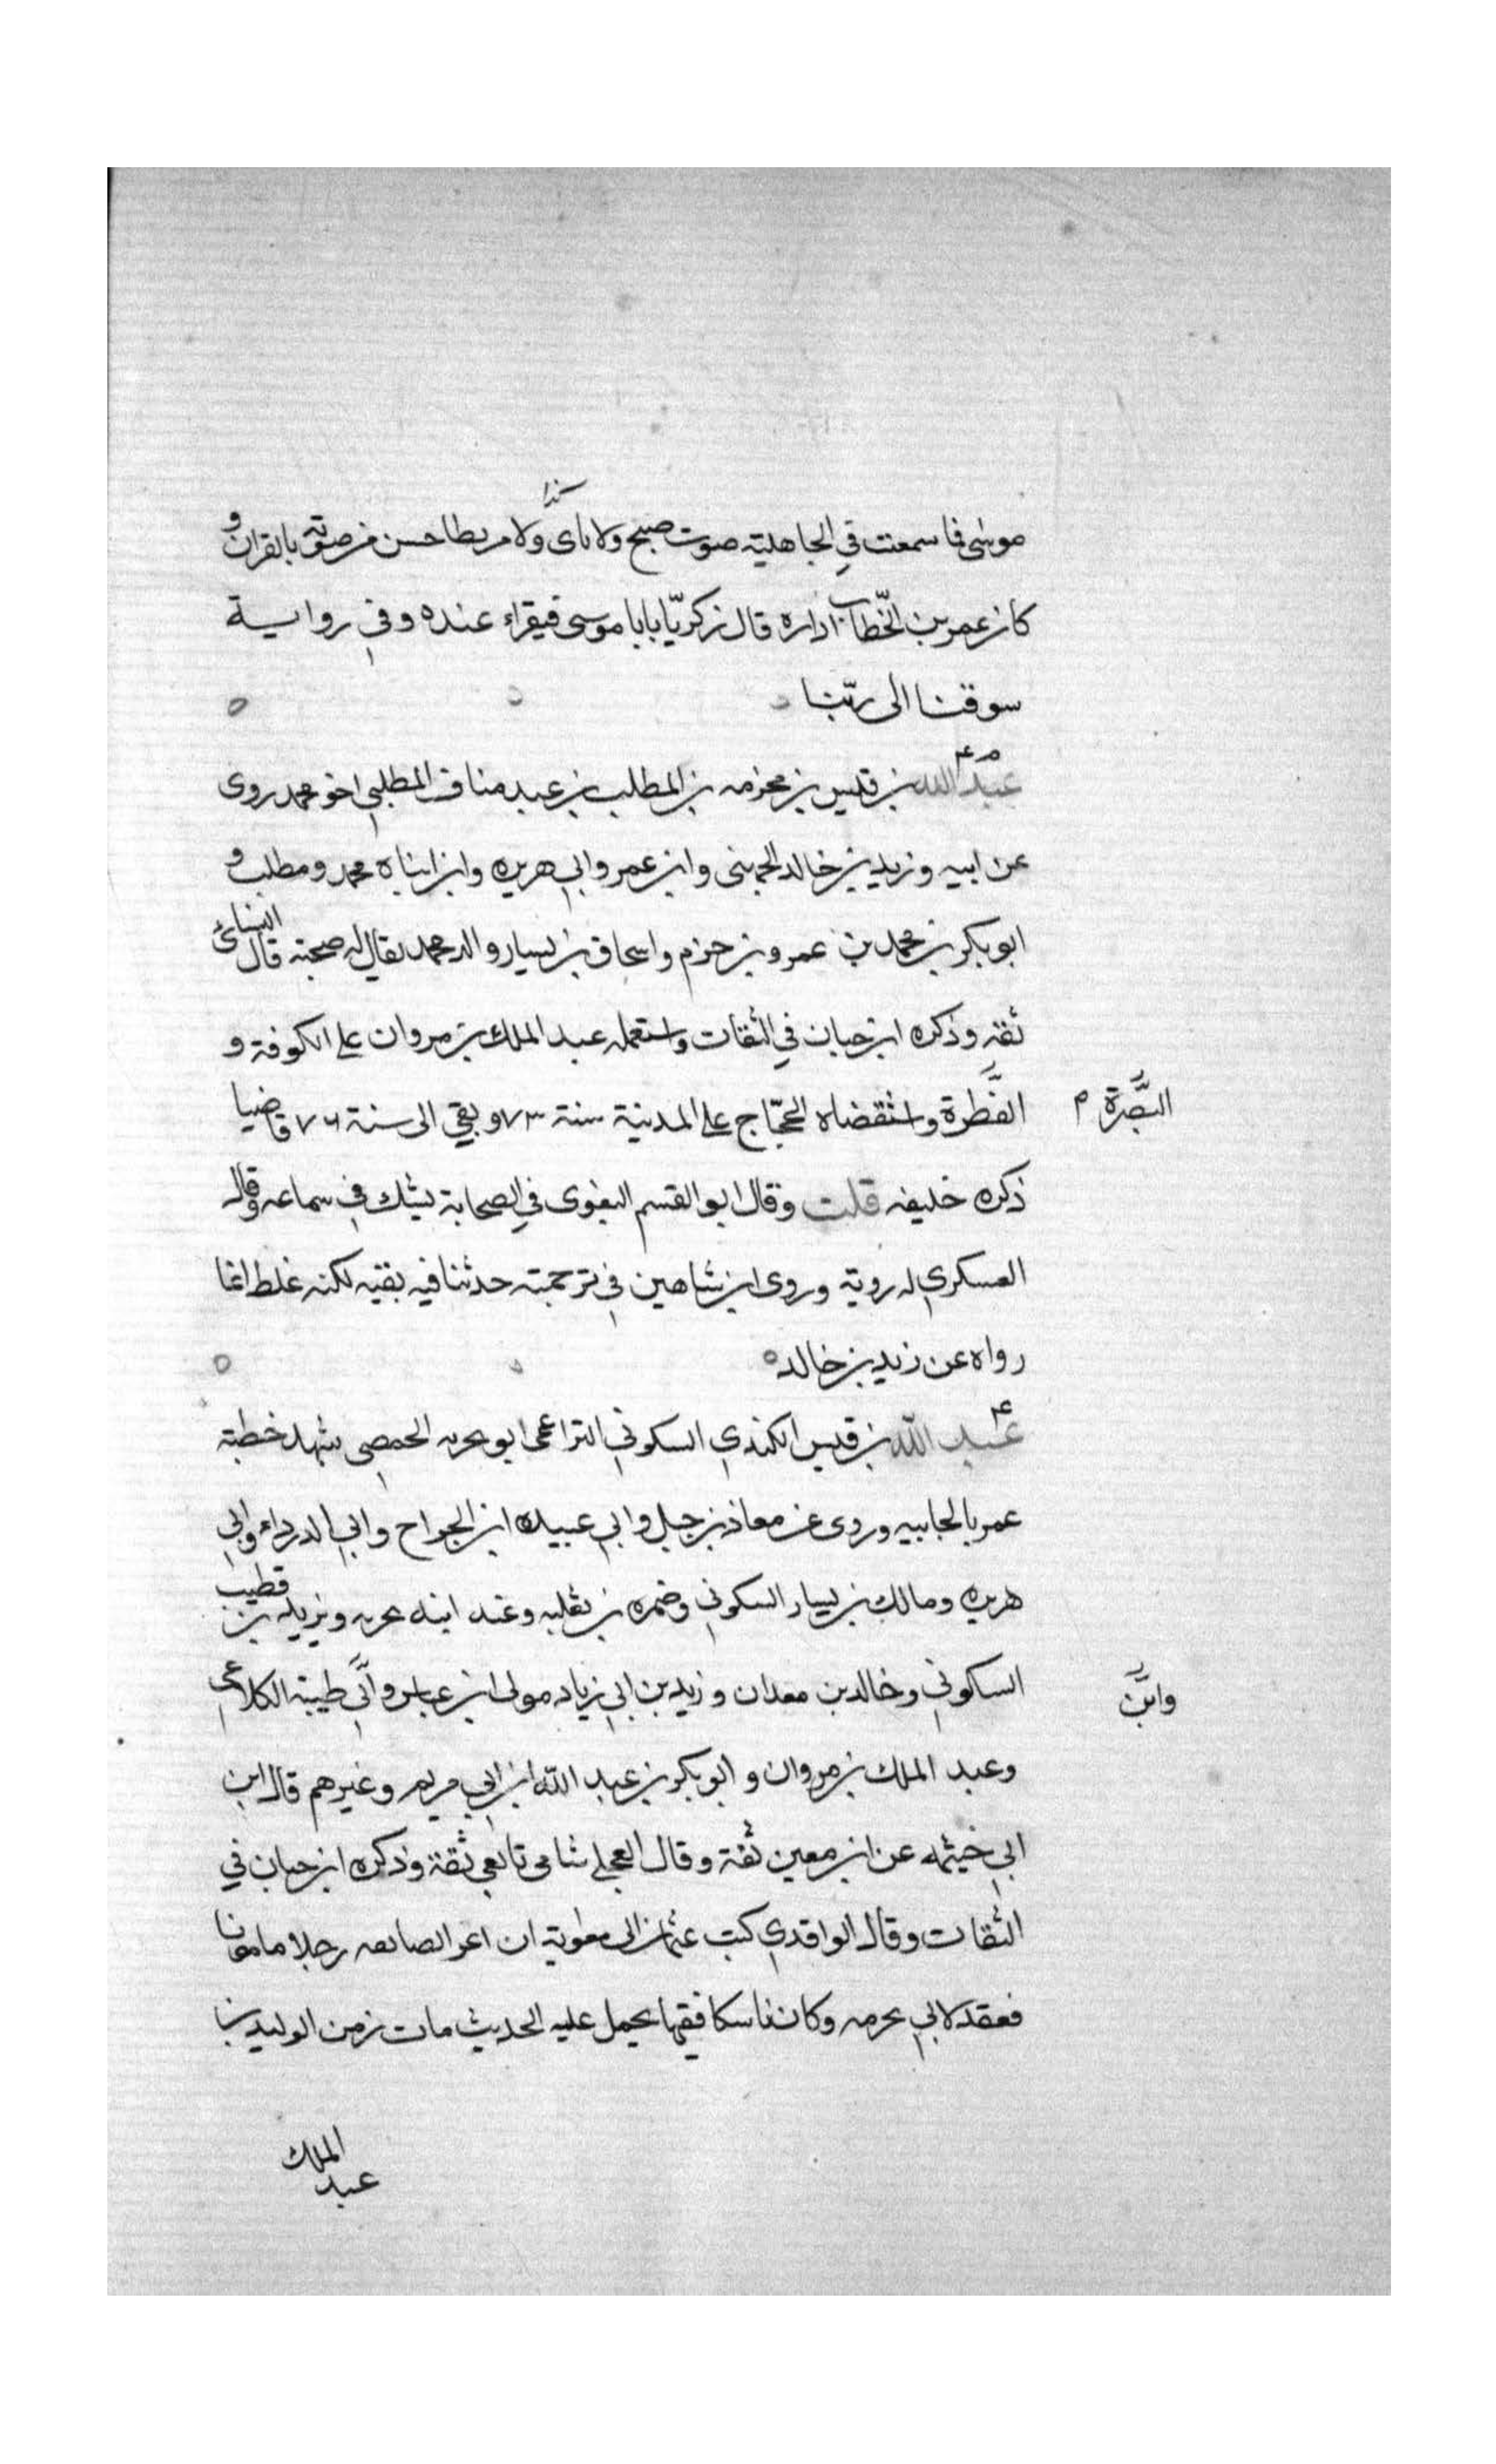 كذا
موسى فما سمعت في الجاهلية صوت صبح ولا ناى ولا مربطا حسن من صوته بالقران و
كان عمر بن الخطاب اداره قال زكريا يابا موسى فيقراء عنده وفي رواية
سوقنا الى ربنا
م ۴
عبد الله بن قيس بن مخزمه بن المطلب بن عبد مناف المطلبي اخو محمد روى
عن ابيه وزيد بن خالد الجهنى وابن عمر وابي هريره وابن ابناه محمد ومطلب و
ابو بكر بن محمد بن عمرو بن حزم واسحاق بن يسار والد محمد يقال له صحبة قال النسائي
ثقة وذكره ابن حبان في الثقات واستعمله عبد الملك بن مروان على الكوفة و
الفطرة واستقضاه الحجّاج على المدينة سنة ٧٣ وبقي الى سنة ٧٦ قاضيا
البصرة م
ذكره خليفه قلت وقال ابو القسم البغوى في الصحابة يشك في سماعه وقال
العسكري له روية وروى ابن شاهين في ترجمته حدثنا فيه بقيه لكنه غلط انما
رواه عن زيد بن خالد
۴
عبد الله بن قيس الكندي السكوني التراغمى ابو بحريه الحمصي شهد خطبة
عمر بالجابيه وروى عن معاذ بن جبل وابي عبيده ابن الجراح وابي الدرداء وابي
هريره ومالك بن يسار السكوني وضمره بن ثعلبه وعنه ابنه بحريه ويزيد بن قطيب
السكوني وخالد بن معدان وزيد بن ابي زياد مولى ابن عباس وأبي طيبة الكلاعي
وابن
وعبد الملك بن مروان وابو بكر بن عبد الله ابن ابي مريم وغيرهم قال ابن
ابي خيثمه عن ابن معين ثقة وقال العجلي شامى تابعي ثقة وذكره ابن حبان في
الثقات وقال الواقدي كتب عثمان الى معاوية ان اغز الصائفه رجلا مامونا
فعقد لابي بحرمه وكان ناسكا فقيها يحمل عليه الحديث مات زمن الوليد بن
عبد الملك